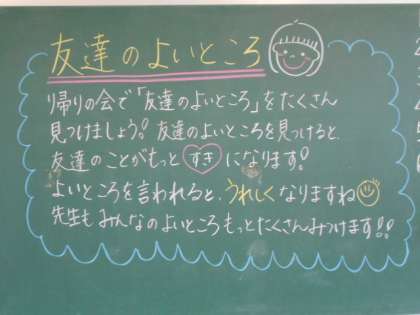 友達のよいところ
帰りの会で「友達のよいところ」をたくさん
見つけましょう!友達のよいところを見つけると、
友達のことがもっとすきになります!
よいところを言われると、うれしくなりますね
先生もみんなのよいところもっとたくさんみつけます!!